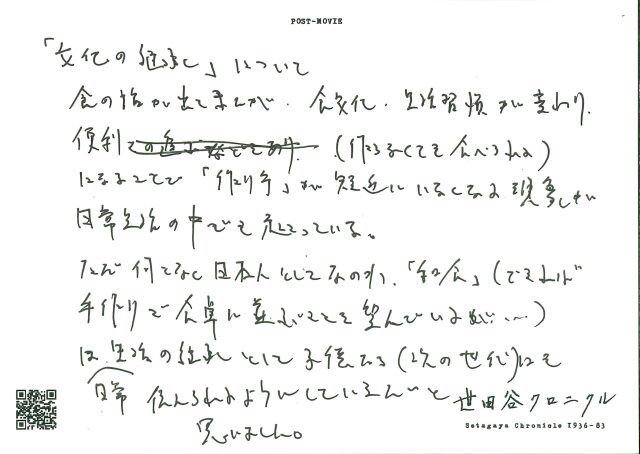 POST-MOVIE
「文化の継承」について
食の話が出てましたが、食文化・生活習慣が変わり、
便利で (作らなくても食べられる)
になることで「作り手」が身近にいなくなる現象が
日常生活の中でも起こっている。
ただ何となく日本人としてなのか、「和食」(できれば
手作りで食卓に並ぶことを望んでいるが…)
は生活の継承として子供たち(次の世代)にも
日常 伝えられるようにしていきたいと
思いました。
世田谷クロニクル
Setagaya Chronicle 1936-83